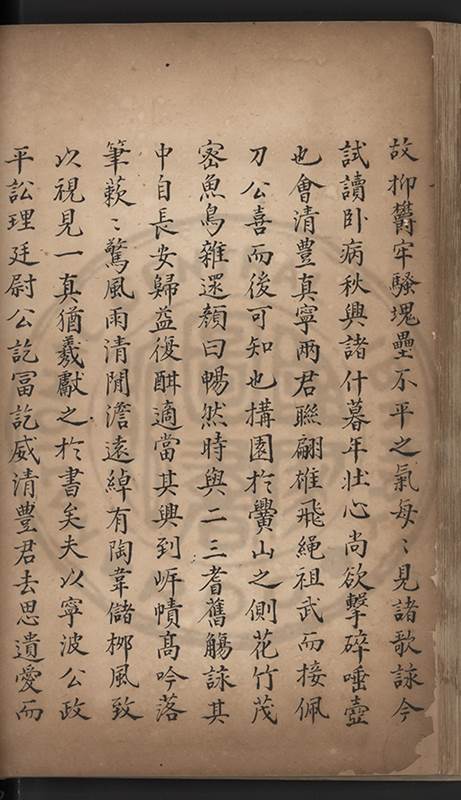 故抑欝牢騷塊壘不平之氣每〻見諸歌詠今
試讀卧病秋興諸什暮年壯心尚欲擊碎唾壺
也會清豊真寧兩君聯翩雄飛繩祖武而接佩
刀公喜而後可知也構園於黌山之側花竹茂
密魚鳥雜還顏曰暢然時與二三耆舊觴詠其
中自長安歸益復酣適當其興到岸幘高吟落
筆蔌〻驚風雨清閒澹遠綽有陶韋儲桞風致
以視見一真猶羲獻之於書矣夫以寧波公政
平訟理廷尉公訖富訖威清豊君去思遺愛而